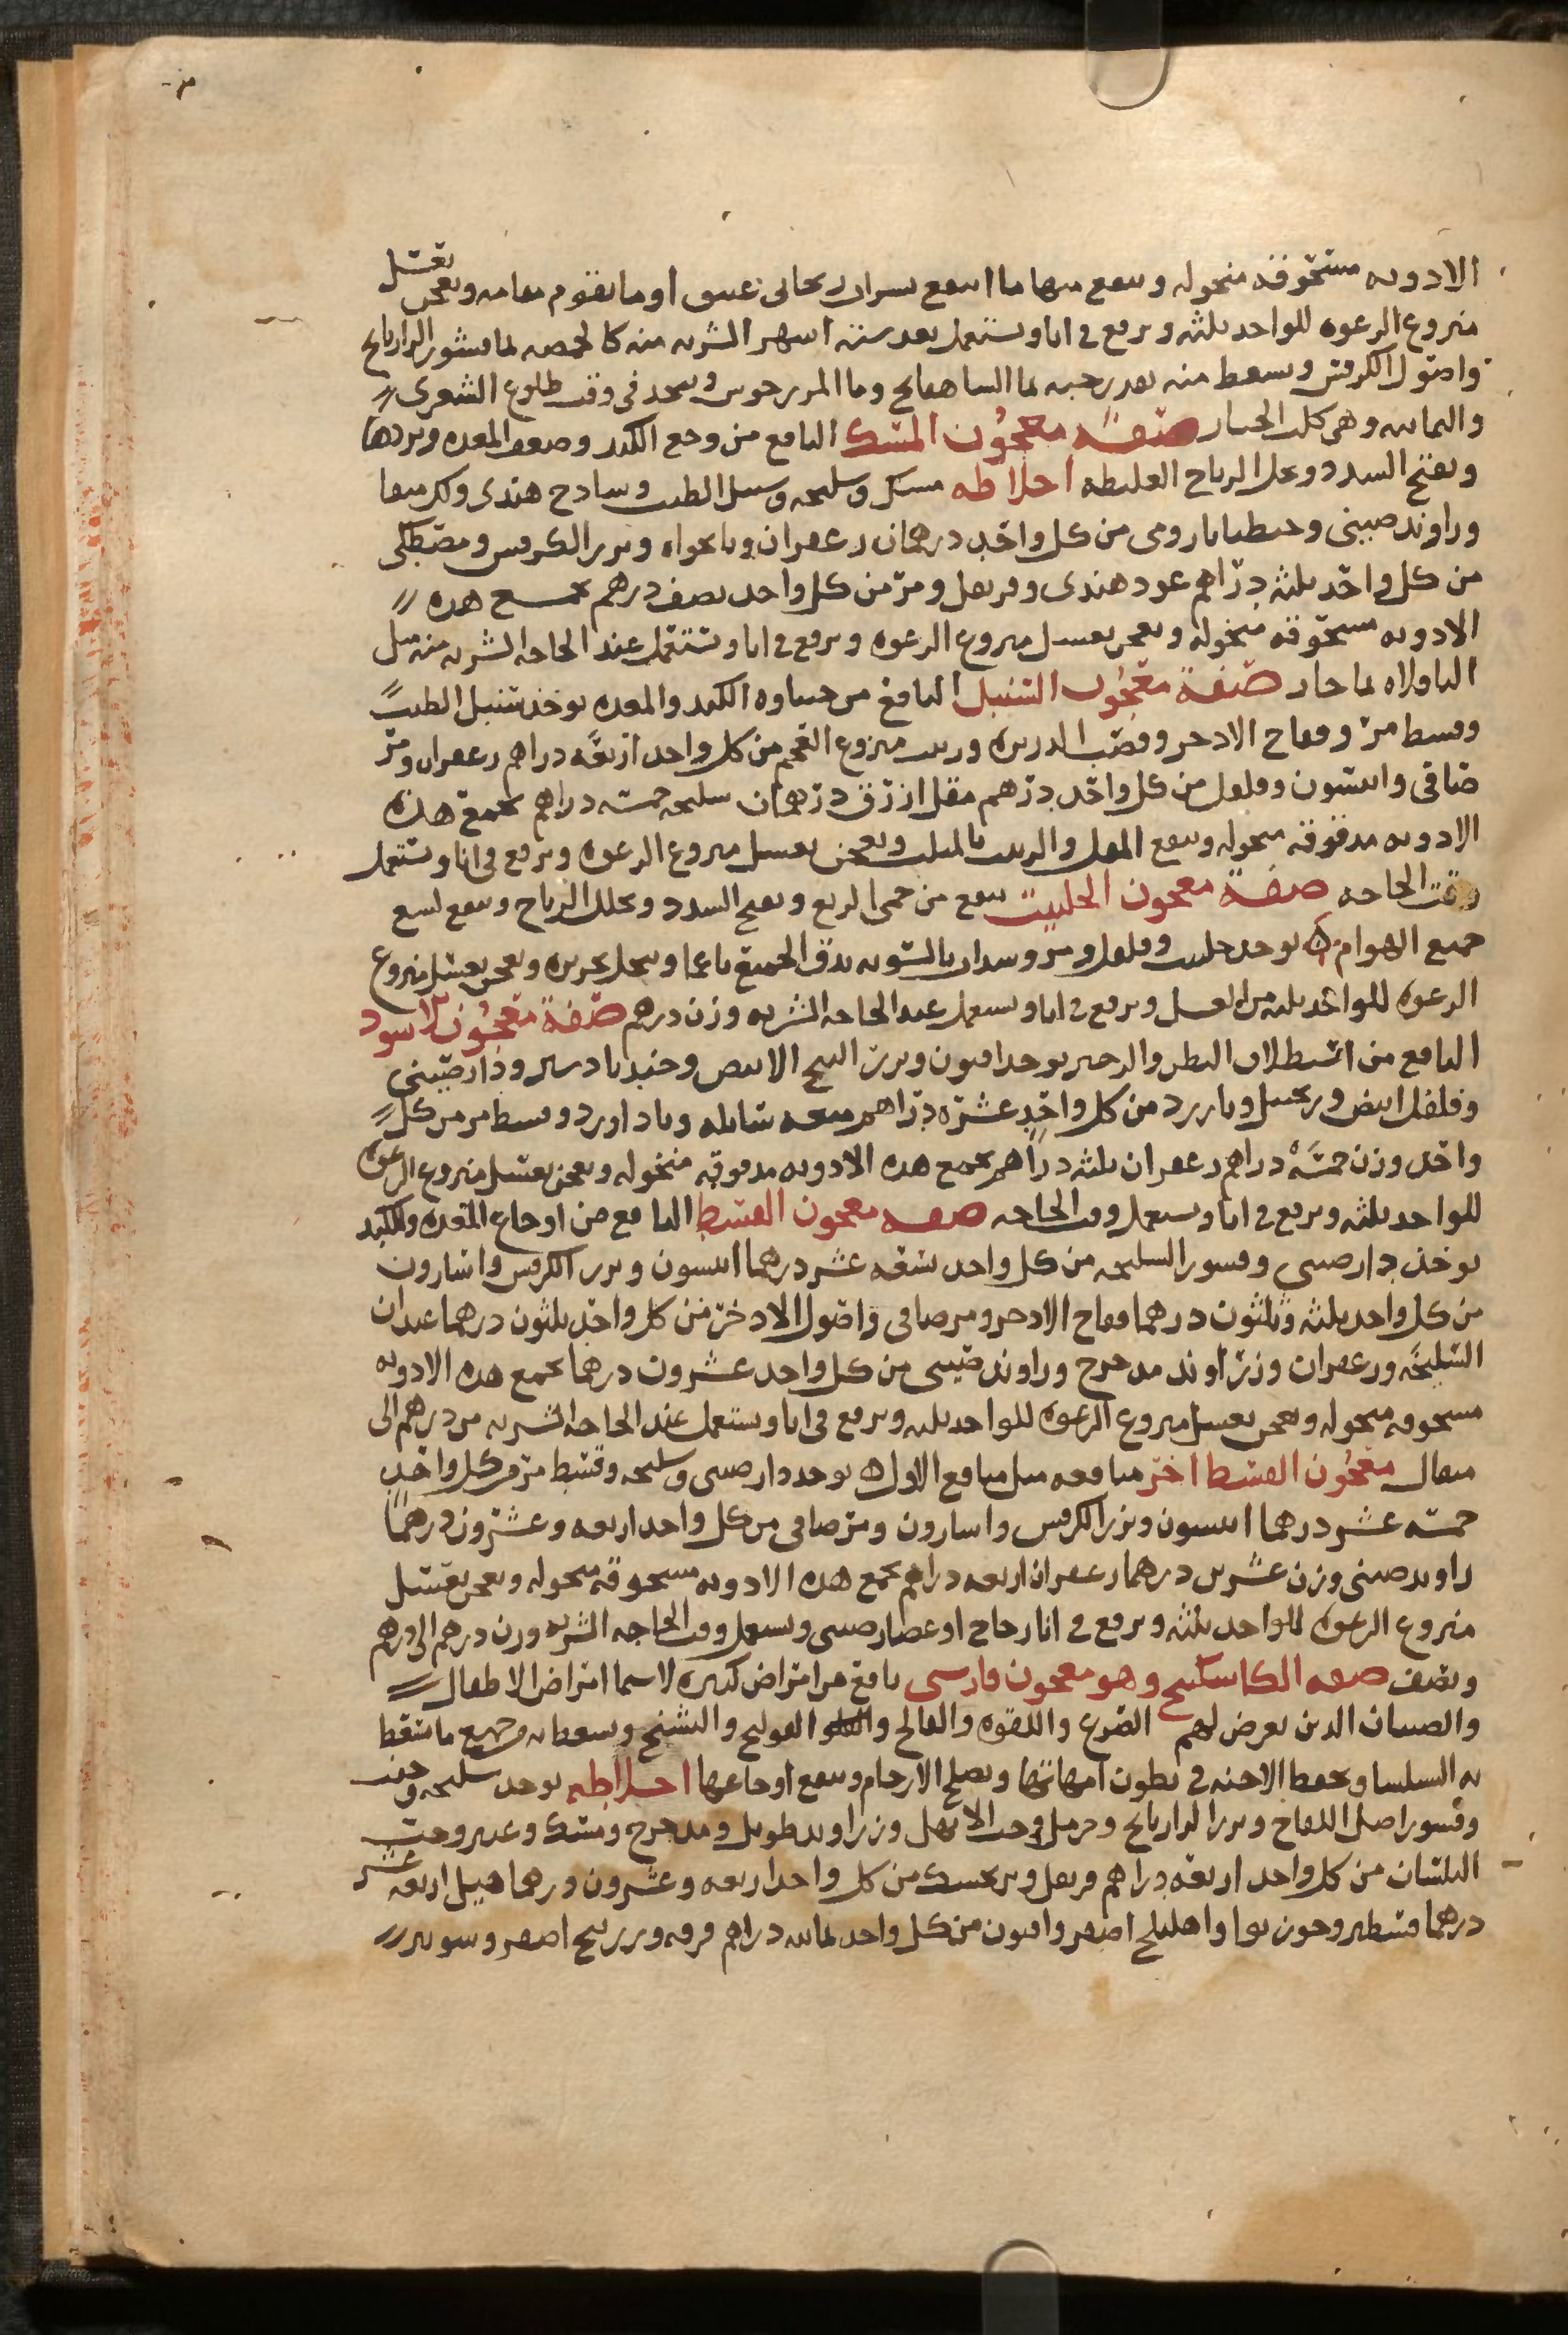 الادويه مسحوقه منخوله وينقع منها ما انتقع بشراب ريحانى عتيق او ما يقوم مقامه ويعجن بعسل
منزوع الرغوه للواحد ثلثه ويرفع فى انا ويستعمل بعد ستة اشهر الشربه منه كالحمصه بما قشور الرازيانج
واصول الكرفس ويسعط منه بقدر حبه بما الشاهفانج وما المرزجوش ويتخد فى وقت طلوع الشعرى
واليمانيه وهى كلب الجبار صفة معجون المسك النافع من وجع الكبد وضعف المعده وبردها
ويفتح السدد ويحلل الرياح الغليظه اخلاطه مسك وسليخه وسنبل الطيب وسادج هندى وكرمنفا
وراوند صينى وجنطيانا رومى من كل واحد درهمان زعفران ونانخواه وبزر الكرفس ومصطكى
من كل واحد ثلثه دراهم عود هندى وقرنفل ومر من كل واحد نصف درهم تجمع هده
الادويه مسحوقه منخوله ويعجن بعسل منزوع الرغوه ويرفع فى انا ويستعمل عند الحاجه الشربه منه مثل
الباقلاه بما حار صفة معجون السنبل النافع من جساوه الكبد والمعده يوخذ سنبل الطيب
وقسط مر وفقاح الادخر وقصب الدريره وزبيب منزوع العجم من كل واحد اربعة دراهم زعفران ومر
صافى وانيسون وفلفل من كل واحد درهم مقل ازرق درهمان سليخه خمسه دراهم تجمع هذه
الادويه مدقوقه منخوله وينقع المقل والزبيب بالمثلث ويعجن بعسل منزوع الرغوه ويرفع فى انا ويستعمل
وقت الحاجه صفة معجون الحلتيت ينفع من حمى الربع ويفتح السدد ويحلل الرياح وينفع لسع
جميع الهوام يوخد حلتيت وفلفل ومر وسداب بالسويه يدق الجميع ناعما وينخل بحريره ويعجن بعسل منزوع
الرغوه للواحد ثلثه من العسل ويرفع فى انا ويستعمل عند الحاجه الشربه وزن درهم صفة معجون الاسود
النافع من استطلاق البطن والزحير يوخد افيون وبزر البنج الابيض وجندبادستر ودارصينى
وفلفل ابيض وزنجبيل وبارزد من كل واحد عشره دراهم ميعه سايله وباداورد وقسط مر من كل
واحد وزن خمسة دراهم زعفران ثلثه دراهم تجمع هده الادويه مدقوقه منخوله ويعجن بعسل منزوع الرغوه
للواحد ثلثه ويرفع فى انا ويستعمل وقت الحاجه صفه معجون القسط النافع من اوجاع المعده والكبد
يوخذ دارصينى وقشور السليخه من كل واحد تسعه عشر درهما انيسون وبزر الكرفس واسارون
من كل واحد ثلثه وثلثون درهما فقاح الادخر ومر صافى واصول الادخر من كل واحد ثلثون درهما عيدان
السليخه وزعفران وزراوند مدحرج وراوند صينى من كل واحد عشرون درهما تجمع هده الادويه
مسحوقه منخوله ويعجن بعسل منزوع الرغوه للواحد ثلثه ويرفع فى انا ويستعمل عند الحاجه الشربه من درهم الى
مثقال معجون القسط اخر منافعه مثل منافع الاول يوخد دارصينى وسليخه وقسط مر من كل واحد
خمسة عشر درهما انيسون وبزر الكرفس واسارون ومر صافى من كل واحد اربعه وعشرون درهما
راوند صينى وزن عشرين درهما زعفران اربعه دراهم تجمع هده الادويه مسحوقه منخوله ويعجن بعسل
منزوع الرغوه للواحد ثلثه ويرفع فى انا زجاج او غضار صينى ويستعمل وقت الحاجه الشربه وزن درهم الى درهم
ونصف صفه الكاسكبينج وهو معجون فارسى نافع من امراض كثيره لاسيما امراض الاطفال
والصبيان الدين يعرض لهم الصرع واللقوه والفالج والقولنج والتشنج ويسعط به وجميع ما تسعط
به السلسا ويحفظ الاجنه فى بطون امهاتها ويصلح الارحام وينفع اوجاعها اخلاطه يوخد سليخه
وقشور اصل اللفاح وبزر الرازيانج وحرمل وحب الابهل وزراوند طويل ومدحرج ومسك وعنبر وحب
البلسان من كل واحد اربعه دراهم قرنفل وبرنجمسك من كل واحد اربعه وعشرون درهما هيل اربعه عشر
درهما قسط مر وجوزبوا واهليلج اصفر وافيون من كل واحد ثمانيه دراهم قرفه وزرنيخ اصفر وشونيز